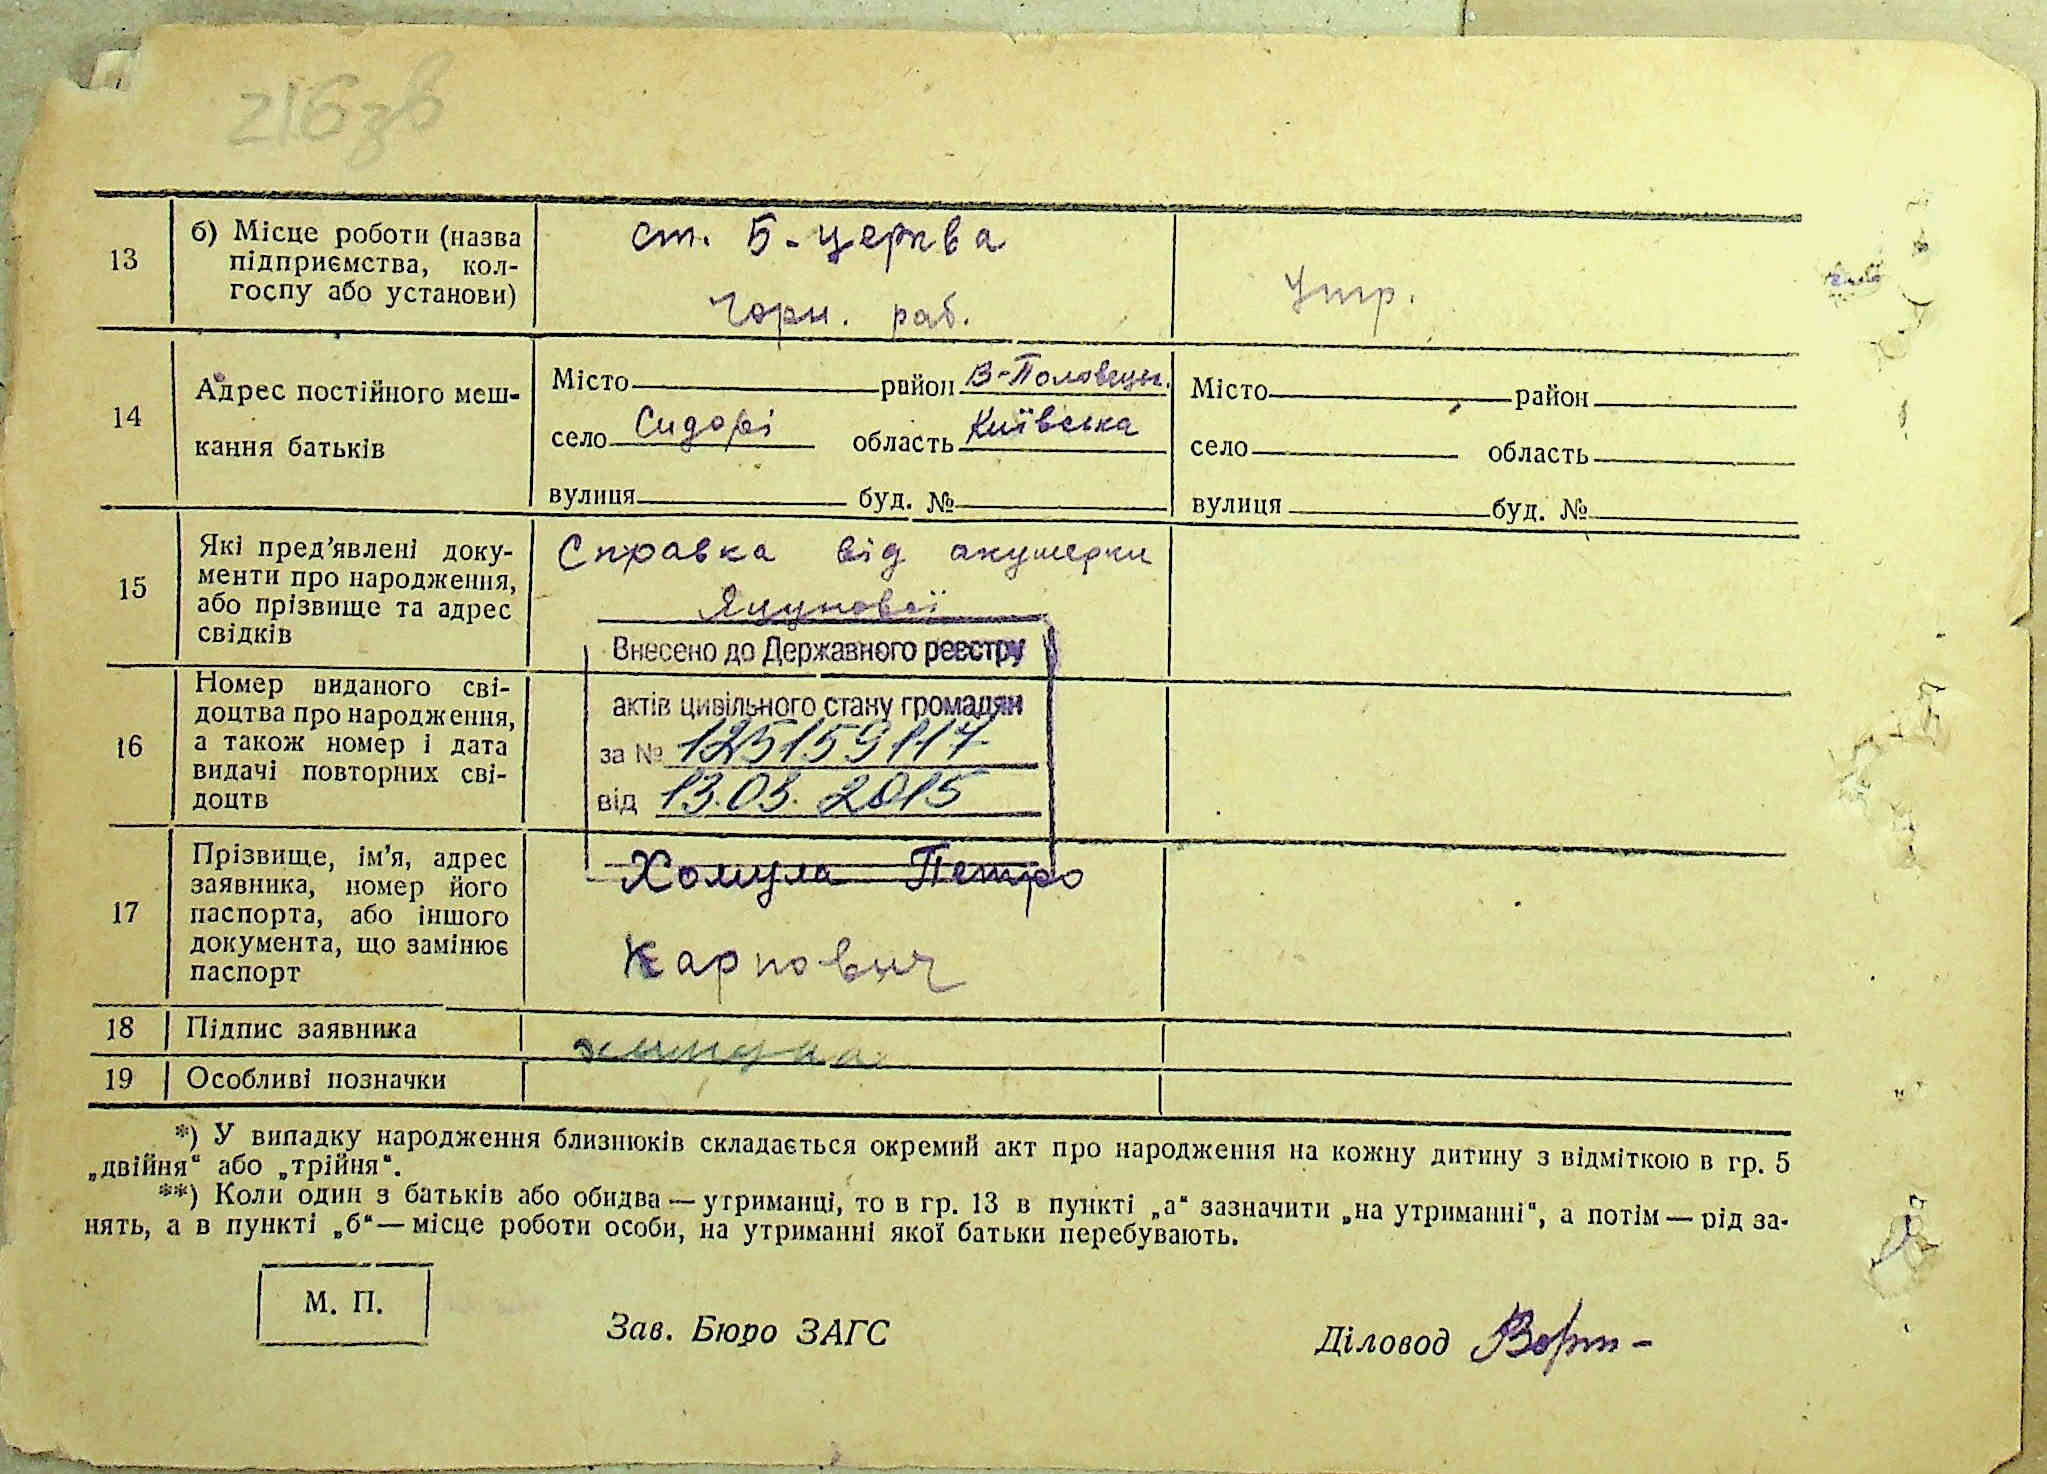 216зв
13 б) Місце роботи (назва підприємства, колгоспу або установи) ст. Б-церква Чорн. раб. Утр.
14 Адрес постійного мешкання батьків
Місто район В-Половецьк. Місто район
село Сидорі область Київська село область
вулиця буд. № вулиця буд. №
15 Які пред'явлені доку-
менти про народження,
або прізвище та адрес
свідків
Справка від акушерки
Внесено до Державного реєстру
актів цивільного стану громадян
за № 125159117
від 13.03.2015
16 Номер виданого сві-
доцтва про народження,
а також номер і дата
видачі повторних сві-
доцтв
17 Прізвище, ім'я, адрес
заявника, номер його
паспорта, або іншого
документа, що замінює
паспорт
Хомула Петро
Карпович
18 Підпис заявника
19 Особливі позначки
*) У випадку народження близнюків складається окремий акт про народження на кожну дитину з відміткою в гр. 5
„двійня“ або „трійня“.
**) Коли один з батьків або обидва — утриманці, то в гр. 13 в пункті „а“ зазначити „на утриманні“, а потім — рід за-
нять, а в пункті „б“ — місце роботи особи, на утриманні якої батьки перебувають.
М. П.
Зав. Бюро ЗАГС
Діловод